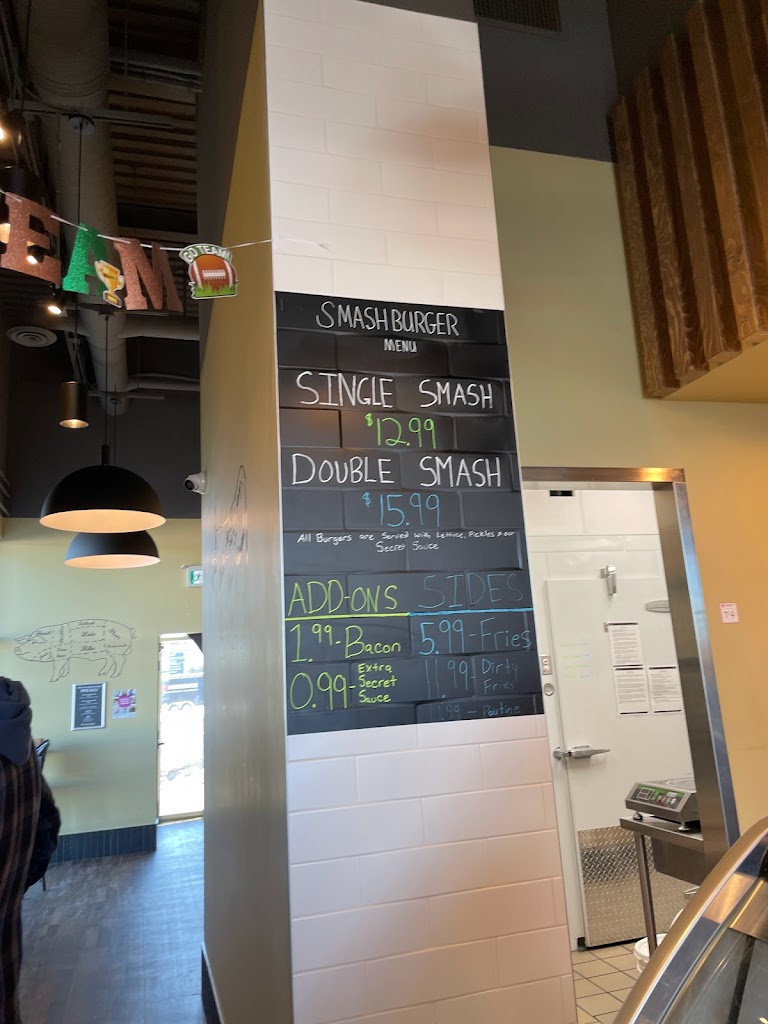 EAM
GO TEAM!
SMASHBURGER
MENU
SINGLE SMASH
$12.99
DOUBLE SMASH
$15.99
All Burgers are Served with Lettuce, Pickles & our
Secret Sauce
ADD-ONS
1.99 - Bacon
0.99 - Extra
Secret
Sauce
SIDES
5.99 - Fries
11.99 - Dirty
Fries
11.99 - Poutine
MENU